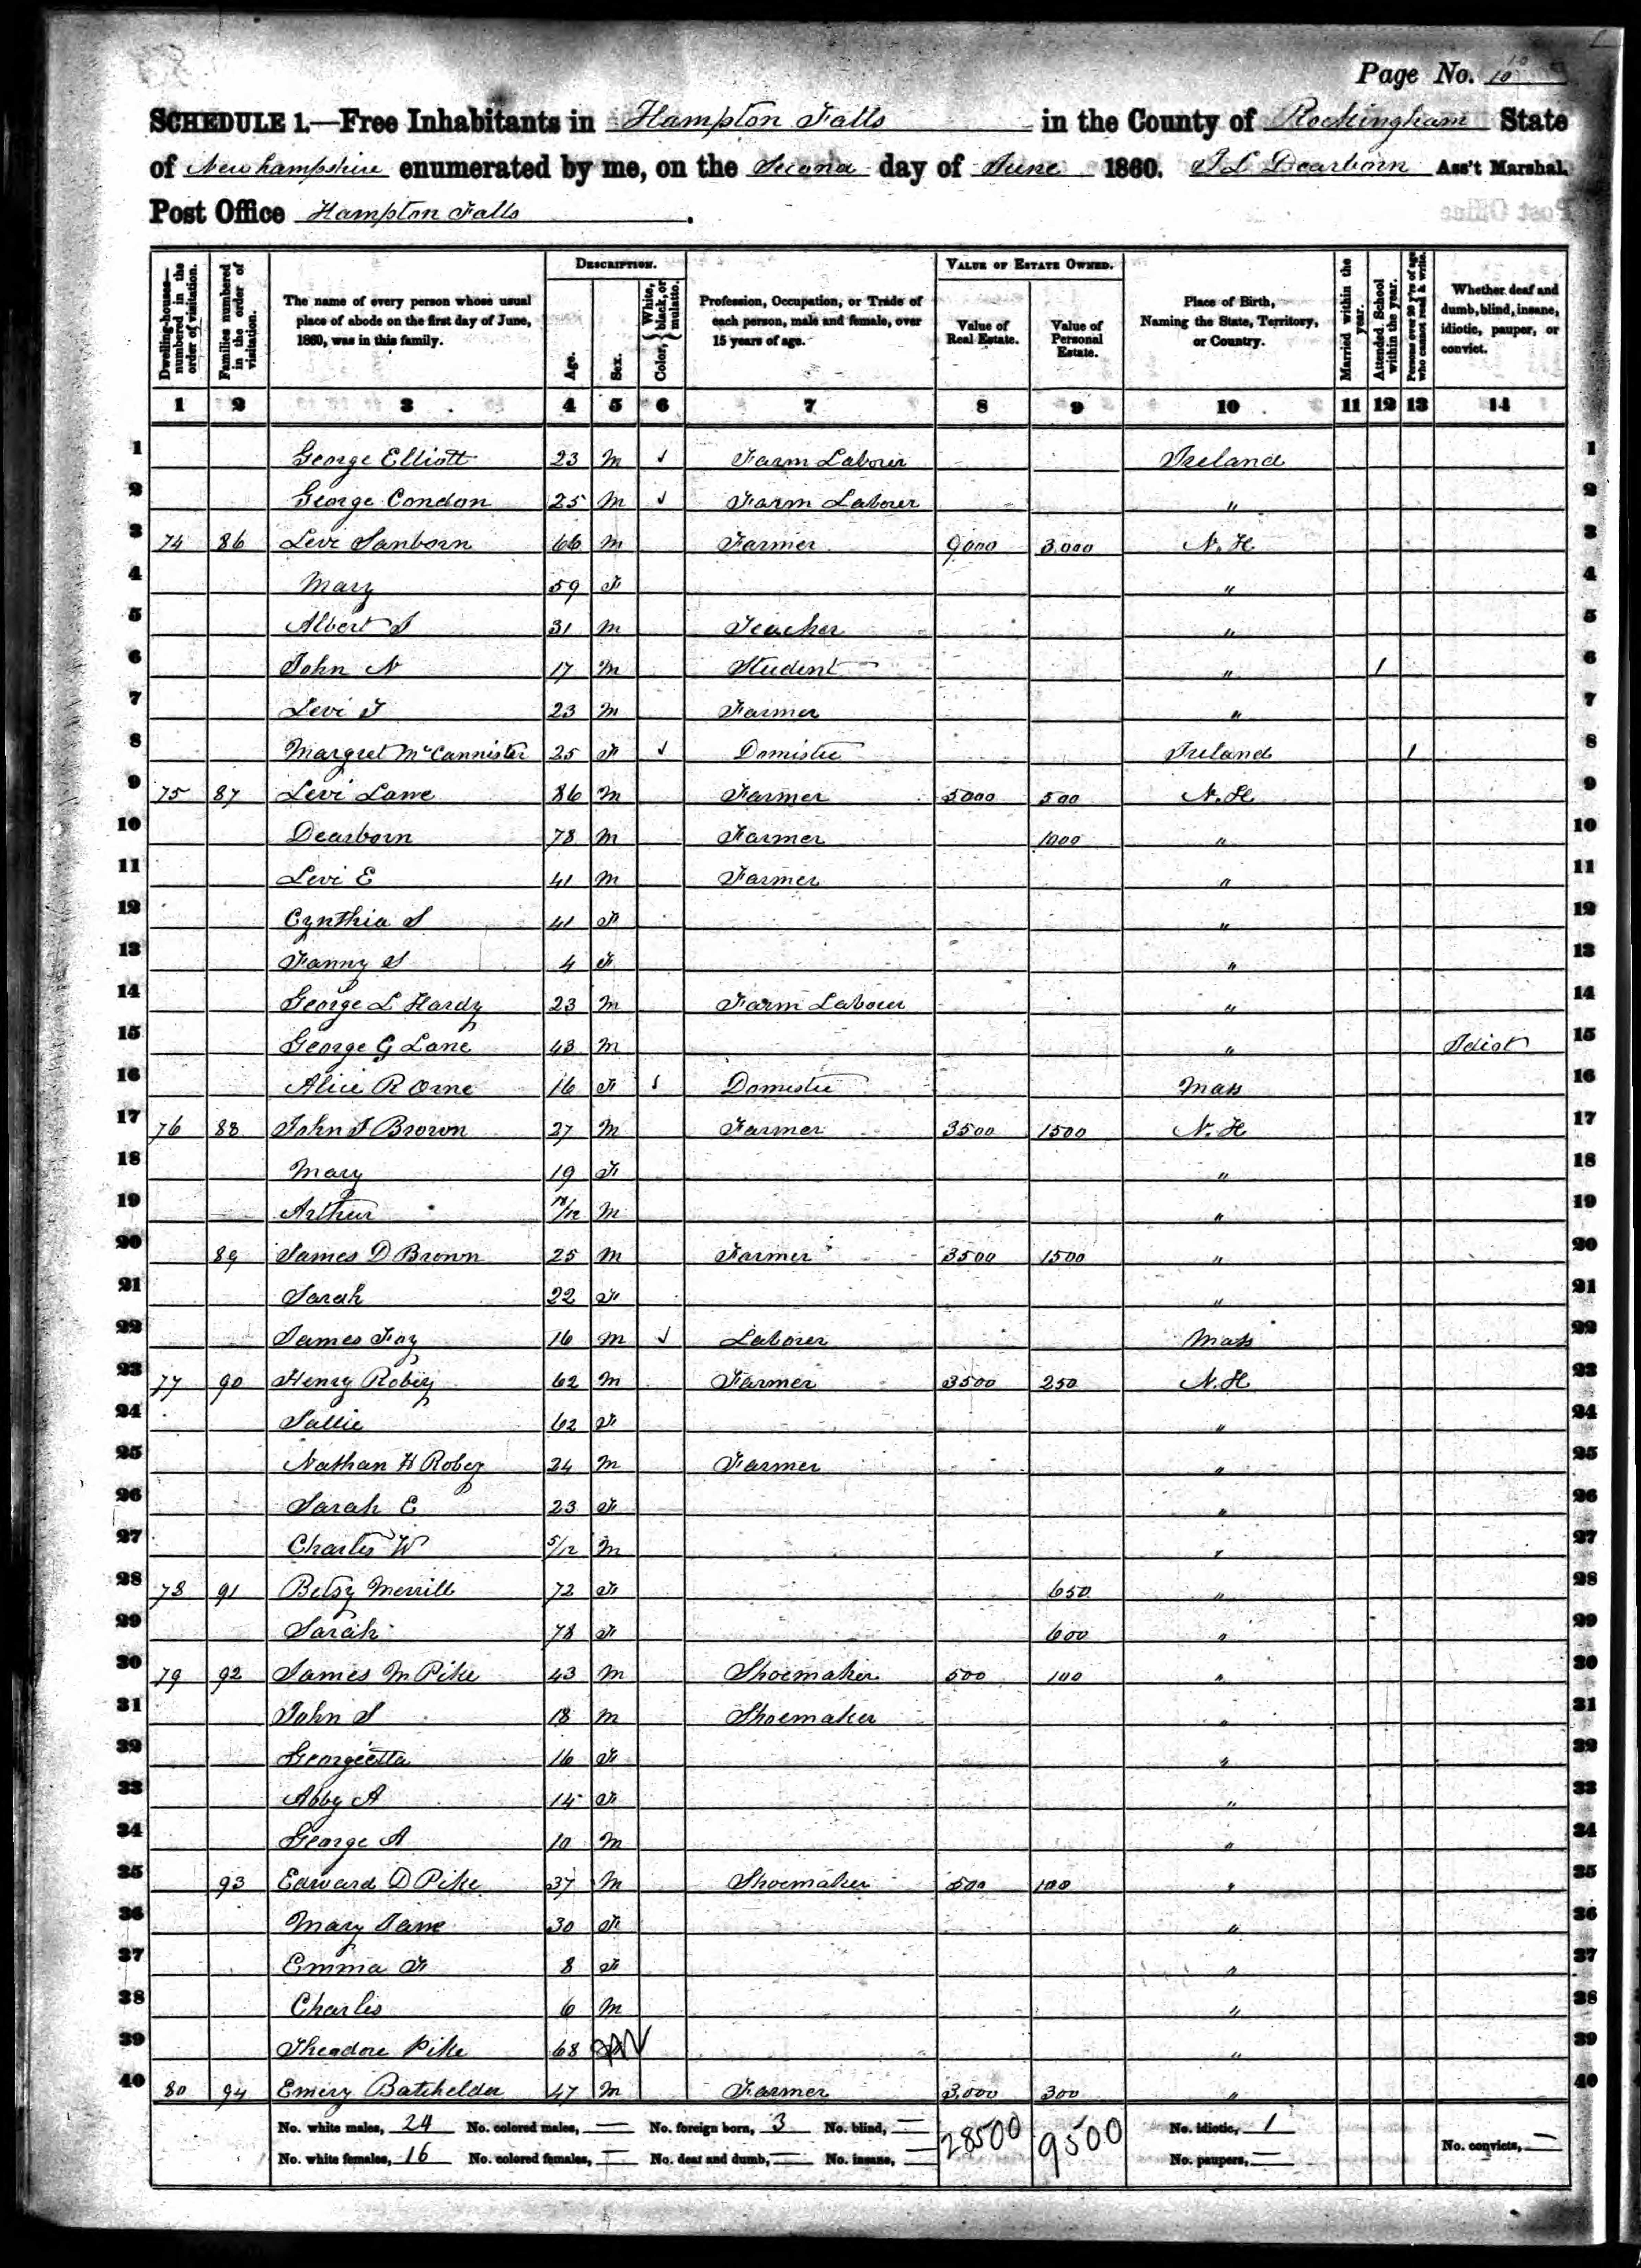 Page No. 10
SCHEDULE 1.—Free Inhabitants in Hampton Falls in the County of Rockingham State
of New hampshire enumerated by me, on the Second day of June 1860. J L Dearborn Ass't Marshal.
Post Office Hampton Falls.
DESCRIPTION. VALUE OF ESTATE OWNED.
Dwelling-houses—numbered in the order of visitation. Families numbered in the order of visitation. The name of every person whose usual place of abode on the first day of June, 1860, was in this family. Age. Sex. Color, White, black, or mulatto. Profession, Occupation, or Trade of each person, male and female, over 15 years of age. Value of Real Estate. Value of Personal Estate. Place of Birth, Naming the State, Territory, or Country. Married within the year. Attended School within the year. Persons over 20 y'rs of age who cannot read & write. Whether deaf and dumb, blind, insane, idiotic, pauper, or convict.
1 2 3 4 5 6 7 8 9 10 11 12 13 14
1 George Elliott 23 M ✓ Farm Laborer Ireland 1
2 George Condon 25 M ✓ Farm Laborer " 2
3 74 86 Levi Sanborn 66 M Farmer 9000 3,000 N. H. 3
4 Mary 59 F " 4
5 Albert S 31 M Teacher " 5
6 John N 17 M Student " 1 6
7 Levi T 23 M Farmer " 7
8 Margret McCannister 25 F ✓ Domistic Ireland 1 8
9 75 87 Levi Lane 86 M Farmer 5000 500 N. H. 9
10 Dearborn 78 M Farmer 1000 " 10
11 Levi E 41 M Farmer " 11
12 Cynthia S 41 F " 12
13 Fanny S 4 F " 13
14 George L Hardy 23 M Farm Laborer " 14
15 George G Lane 43 M " Idiot 15
16 Alice R Orne 16 F ✓ Domestic Mass 16
17 76 88 John T Brown 27 M Farmer 3500 1500 N. H 17
18 Mary 19 F " 18
19 Arthur /12 M " 19
20 89 James D Brown 25 M Farmer 3500 1500 " 20
21 Sarah 22 F " 21
22 James Foy 16 M ✓ Laborer Mass 22
23 77 90 Henry Robey 62 M Farmer 3500 250 N. H 23
24 Sallie 62 F " 24
25 Nathan H Robey 24 M Farmer " 25
26 Sarah E 23 F " 26
27 Charles W 5/12 M " 27
28 78 91 Betsy Merrill 72 F 650 " 28
29 Sarah 78 F 600 " 29
30 79 92 James M Pike 43 M Shoemaker 500 100 " 30
31 John S 18 M Shoemaker " 31
32 Georgietta 16 F " 32
33 Abby A 14 F " 33
34 George A 10 M " 34
35 93 Edward D Pike 37 M Shoemaker 500 100 " 35
36 Mary Jane 30 F " 36
37 Emma F 8 F " 37
38 Charles 6 M " 38
39 Theodore Pike 68 " 39
40 80 94 Emery Batchelder 47 M Farmer 3,000 300 " 40
No. white males, 24 No. colored males, — No. foreign born, 3 No. blind, — 28500 9500 No. idiotic, 1
No. white females, 16 No. colored females, — No. deaf and dumb, — No. insane, — No. paupers, — No. convicts, —